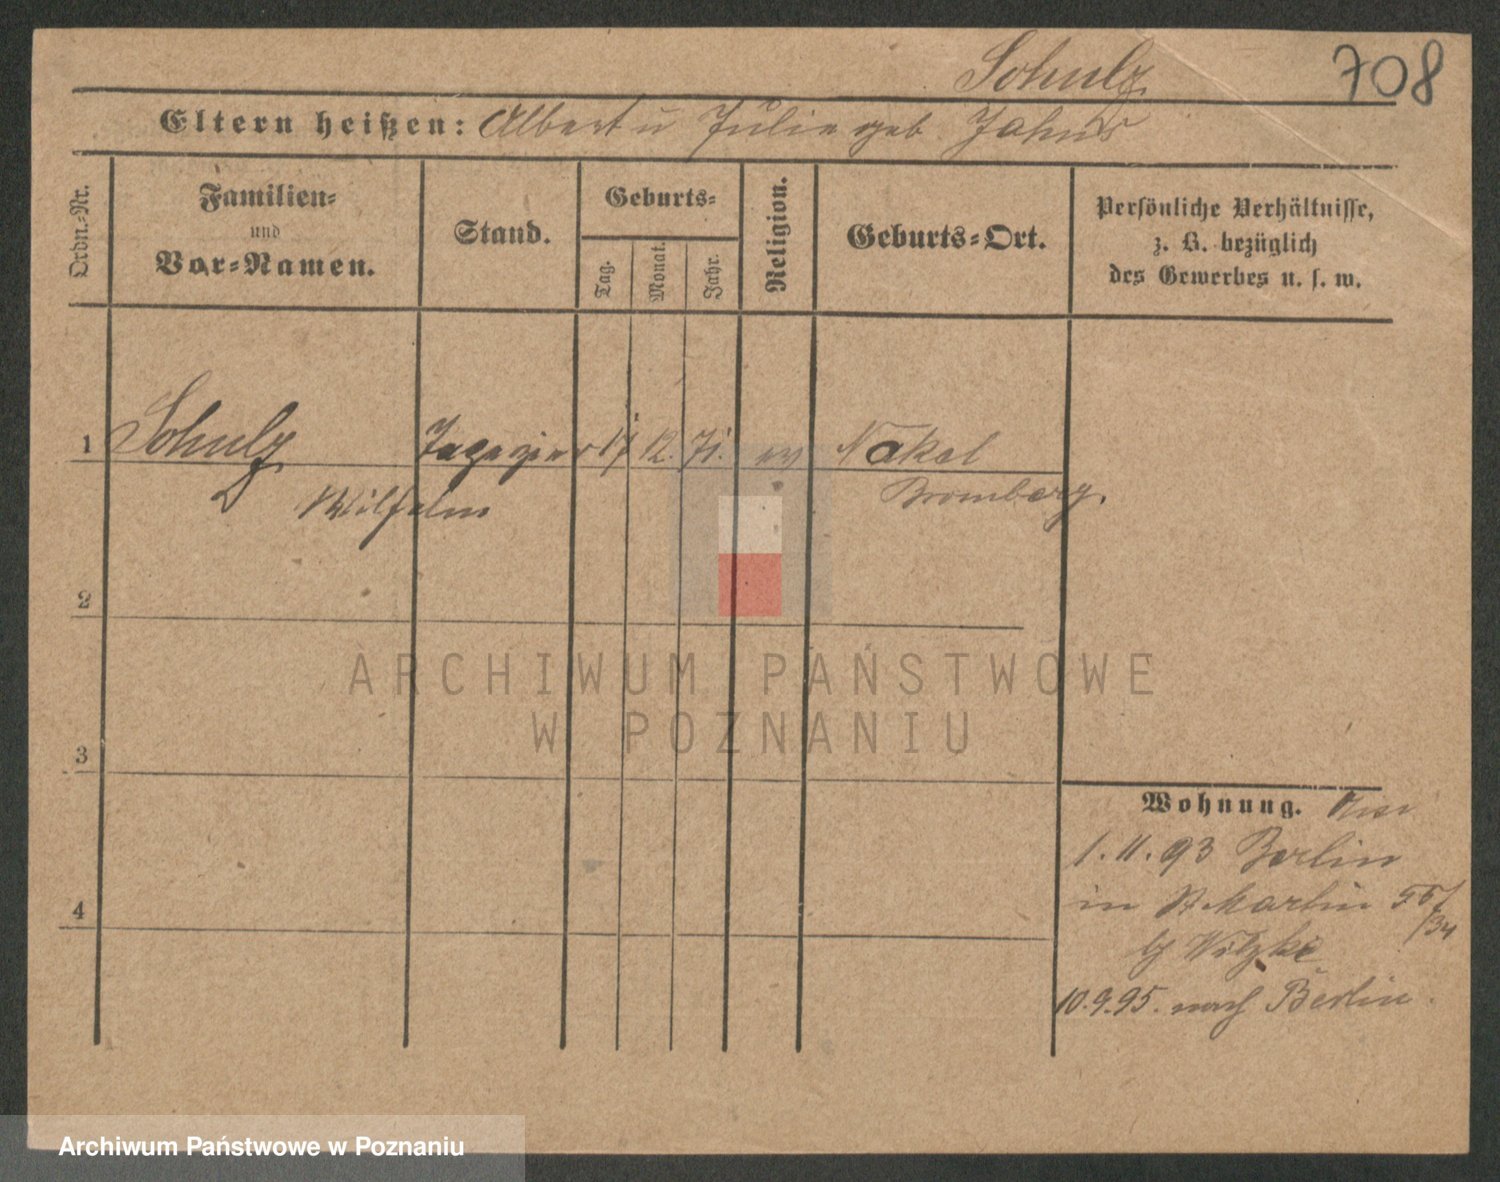 Schulz 708
Eltern heißen: Albert u Julie geb. Jahns
Ordn.-Nr.
Familien-
und
Vor-Namen.
Stand.
Geburts-
Tag.
Monat.
Jahr.
Religion.
Geburts-Ort.
Persönliche Verhältnisse,
z. B. bezüglich
des Gewerbes u. s. w.
1 Schulz 17 12. 71. ev Nakel
Wilhelm Bromberg.
2
3
4
ARCHIWUM PAŃSTWOWE
W POZNANIU
Wohnung.
1. 11. 93 Berlin
in St Martin
/34
b/ Witzke
10.9.95. nach Berlin.
Archiwum Państwowe w Poznaniu